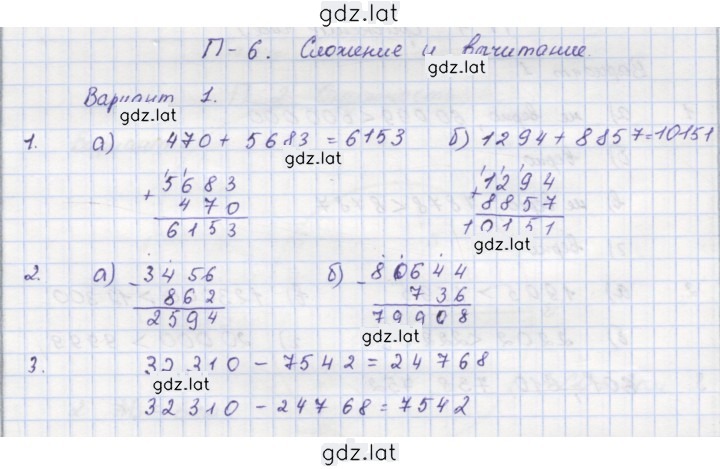 gdz.lat
П-6. Сложение и вычитание.
gdz.lat
Вариант 1.
gdz.lat
1. а) 470 + 5683 = 6153 б) 1294 + 8857 = 10151
gdz.lat
+ 5683 + 1294
470 8857
6153 10151
gdz.lat
2. а) - 3456 б) - 80644
862 736
2594 79908
gdz.lat
3. 32310 - 7542 = 24768
gdz.lat
32310 - 24768 = 7542
gdz.lat